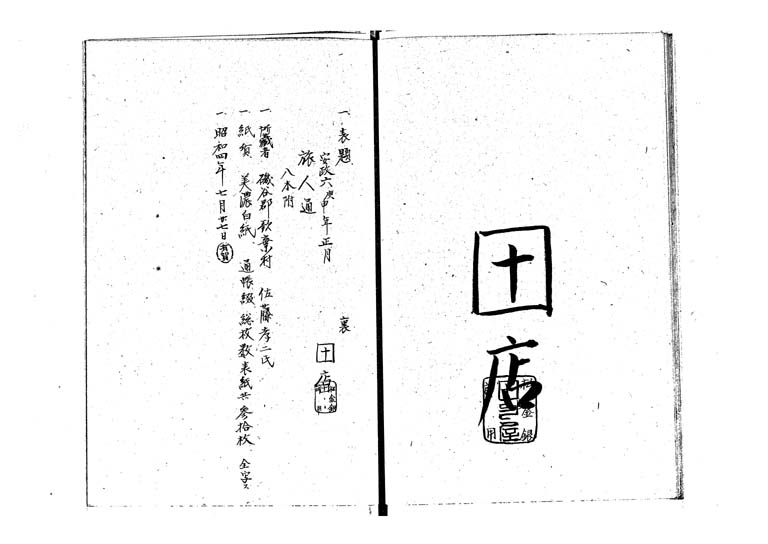 十
店
一、表題
安政六庚申年正月
旅人通
八本附
裏
十
店
一、所蔵者 磯谷郡歌棄村 佐藤孝二氏
一、紙質 美濃白紙 通帳綴 総枚数表紙共参拾枚 全写
一、昭和四年七月廿七日